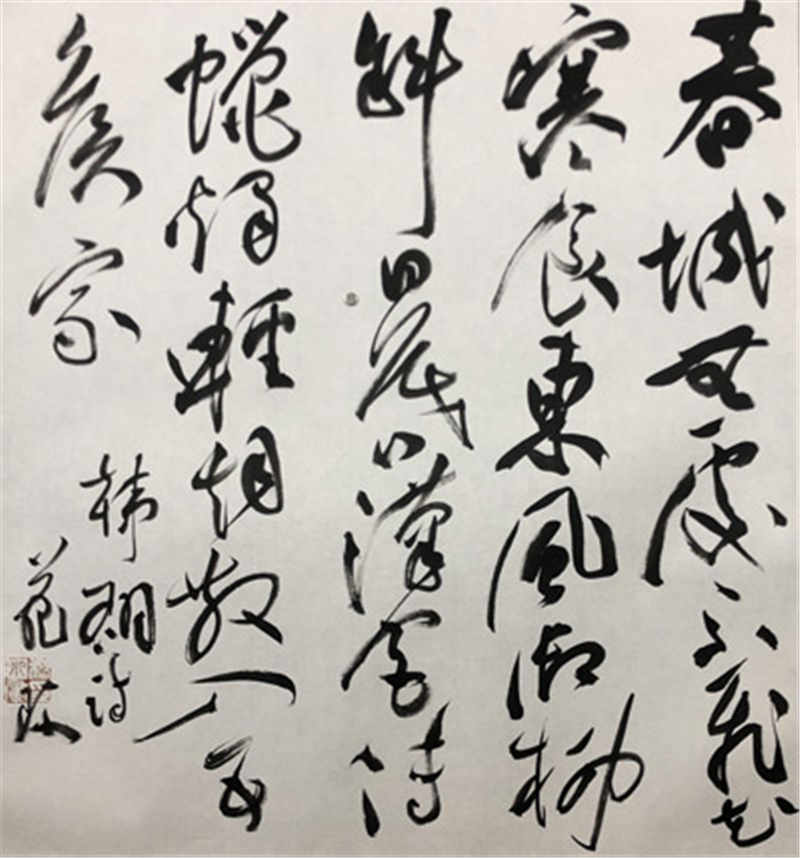 春城無處不飛花
寒食東風御柳
斜日暮漢宮傳
蠟燭輕烟散入五
侯家
韓翃詩
范